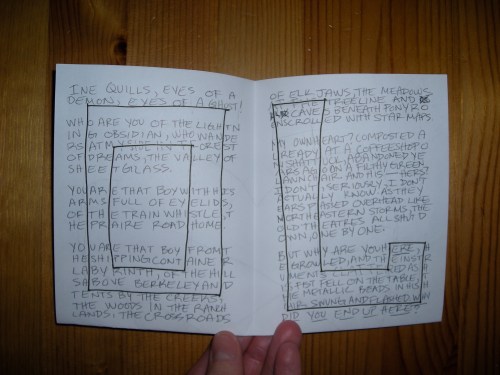 INE QUILLS, EYES OF A
DEMON, EYES OF A GHOST!
WHO ARE YOU OF THE LIGHTN
IN G OBSIDIAN, WHO WANDE
RS AT OREST
OF DREAMS, THE VALLEY OF
SHEET GLASS.
YOU ARE THAT BOY WITH HIS
ARMS FULL OF EYELIDS,
OF THE TRAIN WHISTLE, T
HE PRAIRE ROAD HOME.
YOU ARE THAT BOY FROM T
HE SHIPPING CONTAINE R
LABYRINTH, OF THE HILL
S ABOVE BERKELEY AND
TENTS BY THE CREEKS,
THE WOODS IN THE RANCH
LANDS, THE CROSSROADS
OF ELK JAWS, THE MEADOWS
TREELINE AND
CAVES BENEATH PONY RO
ON SCROLLED WITH STAR MAPS
MY OWN HEART? COMPOSTED A
LREADY AT A COFFEESHOP O
N SHIT LUCK, ABANDONED YE
ARS AGO ON A FILTHY GREEN
AND HIS HERS?
I DON'T, SERIOUSLY, I DON'T
ACTUALLY KNOW. AS THEY
EARS PASSED OVERHEAD LIKE
NORTHEASTERN STORMS, THE
OLD THEATRES ALL SHUT D
OWN, ONE BY ONE.
BUT WHY ARE YOU HERE, H
E GROWLED, AND THE INSTR
UMENTS AS H
IS FIST FELL ON THE TABLE, T
HE METALLIC BEADS IN HIS H
SWUNG AND FLASHED. WHY
DID YOU END UP HERE?